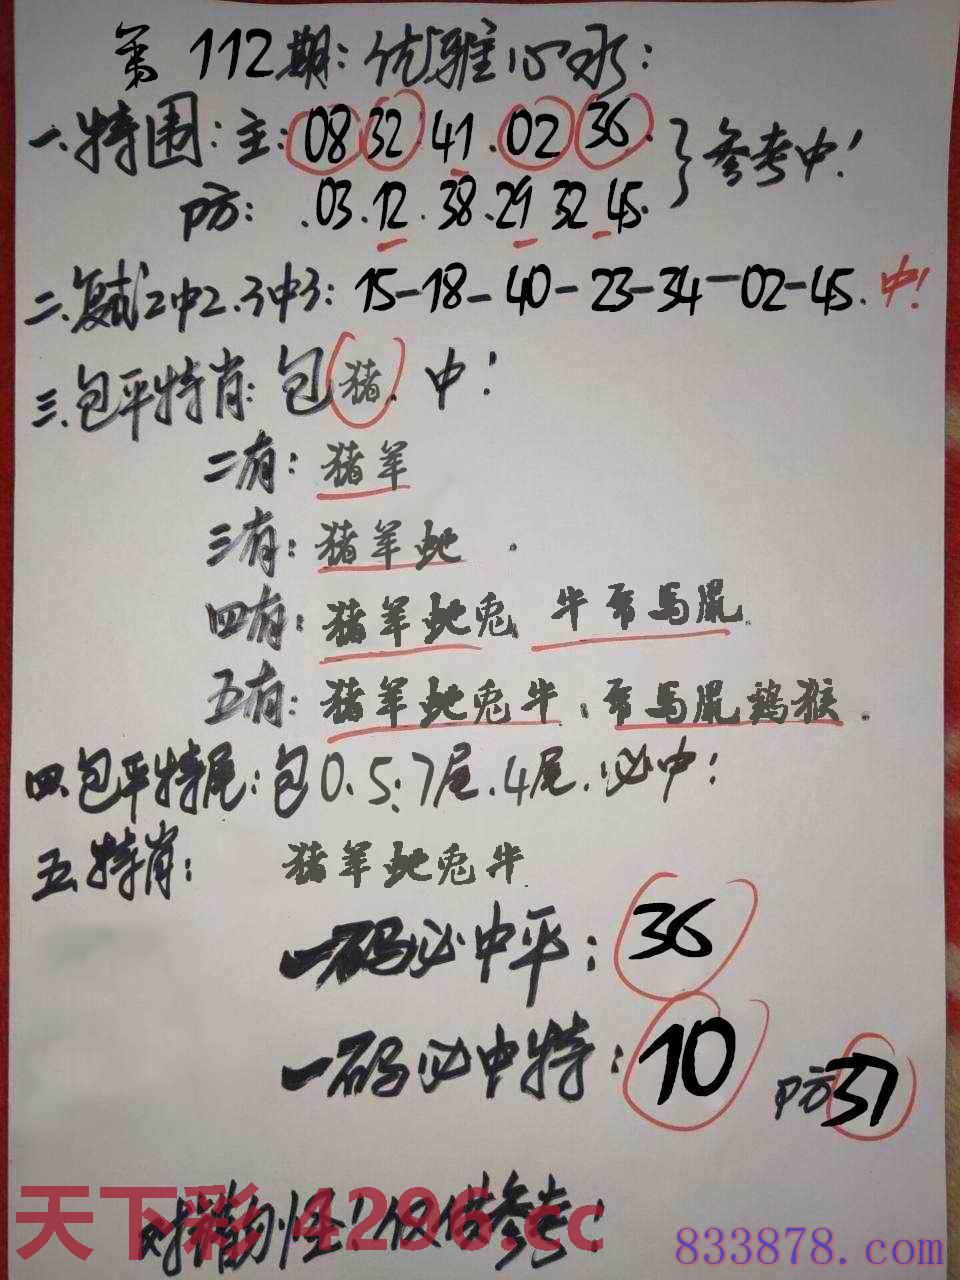 第112期:优雅心水:
一.特围:主:08 32 41.02 36.}参考中!
防:.03.12.38.29 32 45.
二.复式2中2.3中3:15-18-40-23-34-02-45.中!
三.包平特肖:包猪.中!
二有:猪羊
三有:猪羊蛇.
四有:猪羊蛇兔 牛 马鼠.
五有:猪羊蛇兔牛. 马鼠鸡猴.
四.包平特尾:包0.5:7尾.4尾.必中!
五特肖:猪羊蛇兔牛
一码必中平:36
一码必中特:10 防37
对错勿怪!仅供参考!
天下彩 4296.cc
833878.com